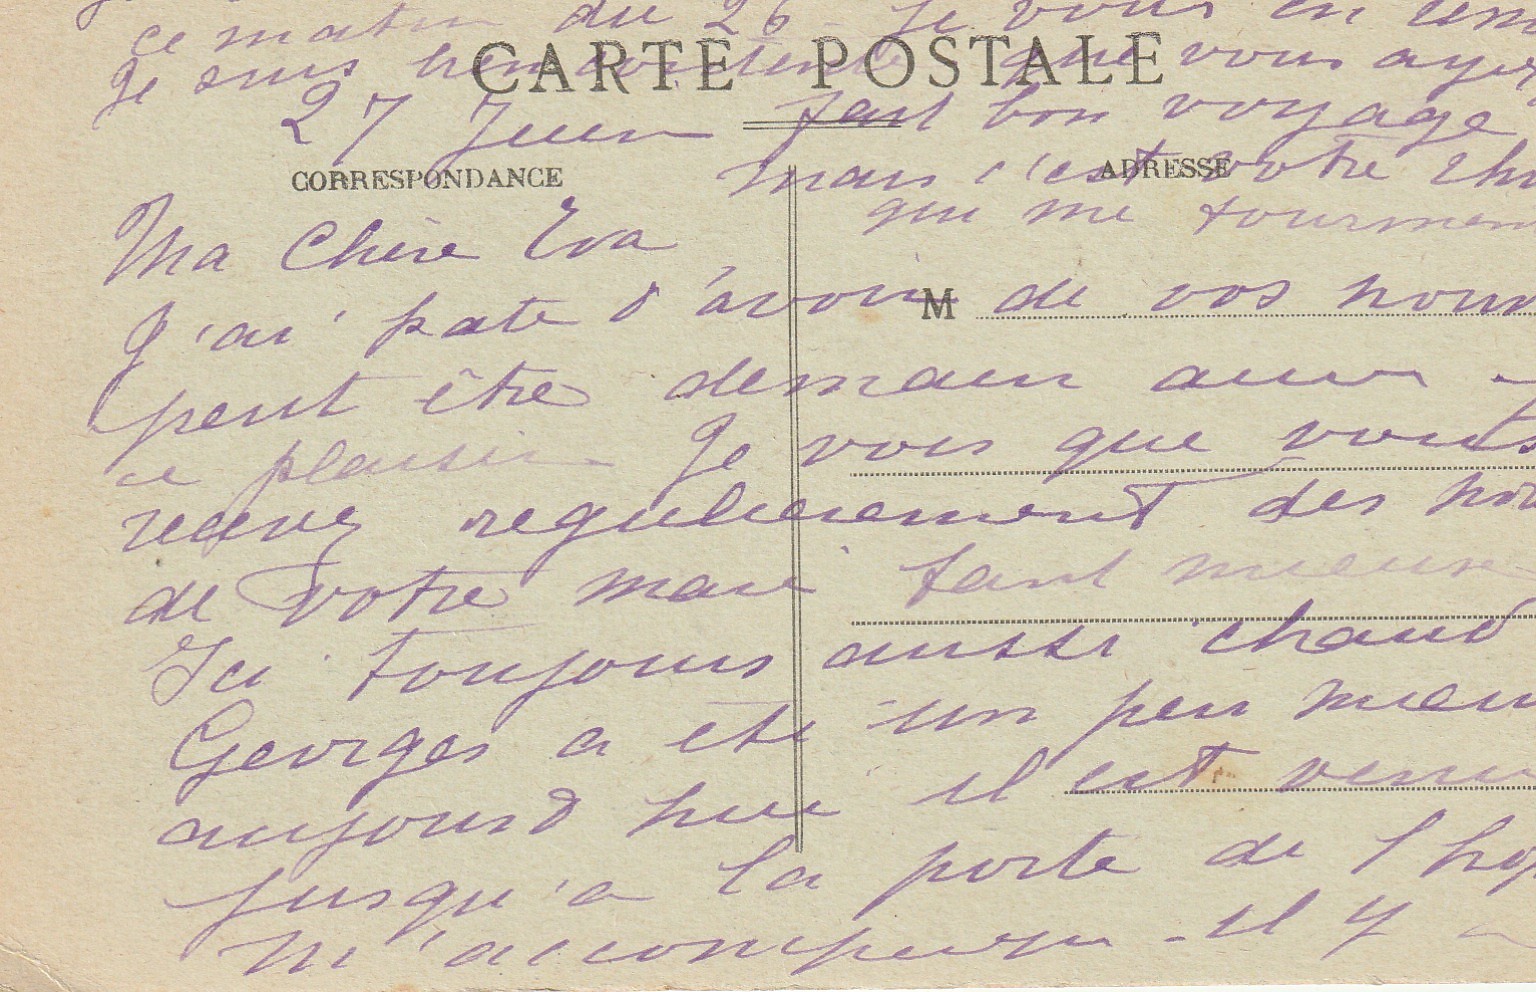 ce matin du 26 Je vous en
Je suis bien contente que vous ayez
CARTE POSTALE
27 Juin fait bon voyage
CORRESPONDANCE ADRESSE
mais c'est votre
qui me
Ma Chère Eva
J'ai hate d'avoir de vos
M
peut être demain aurai
ce plaisir Je vois que vous
recevez regulierement des
de votre mari tant mieux
Ici toujours aussi chaud
Georges a été un peu
aujourd hui il est venu
jusqu'a la porte de l
m'accompagner - il y a